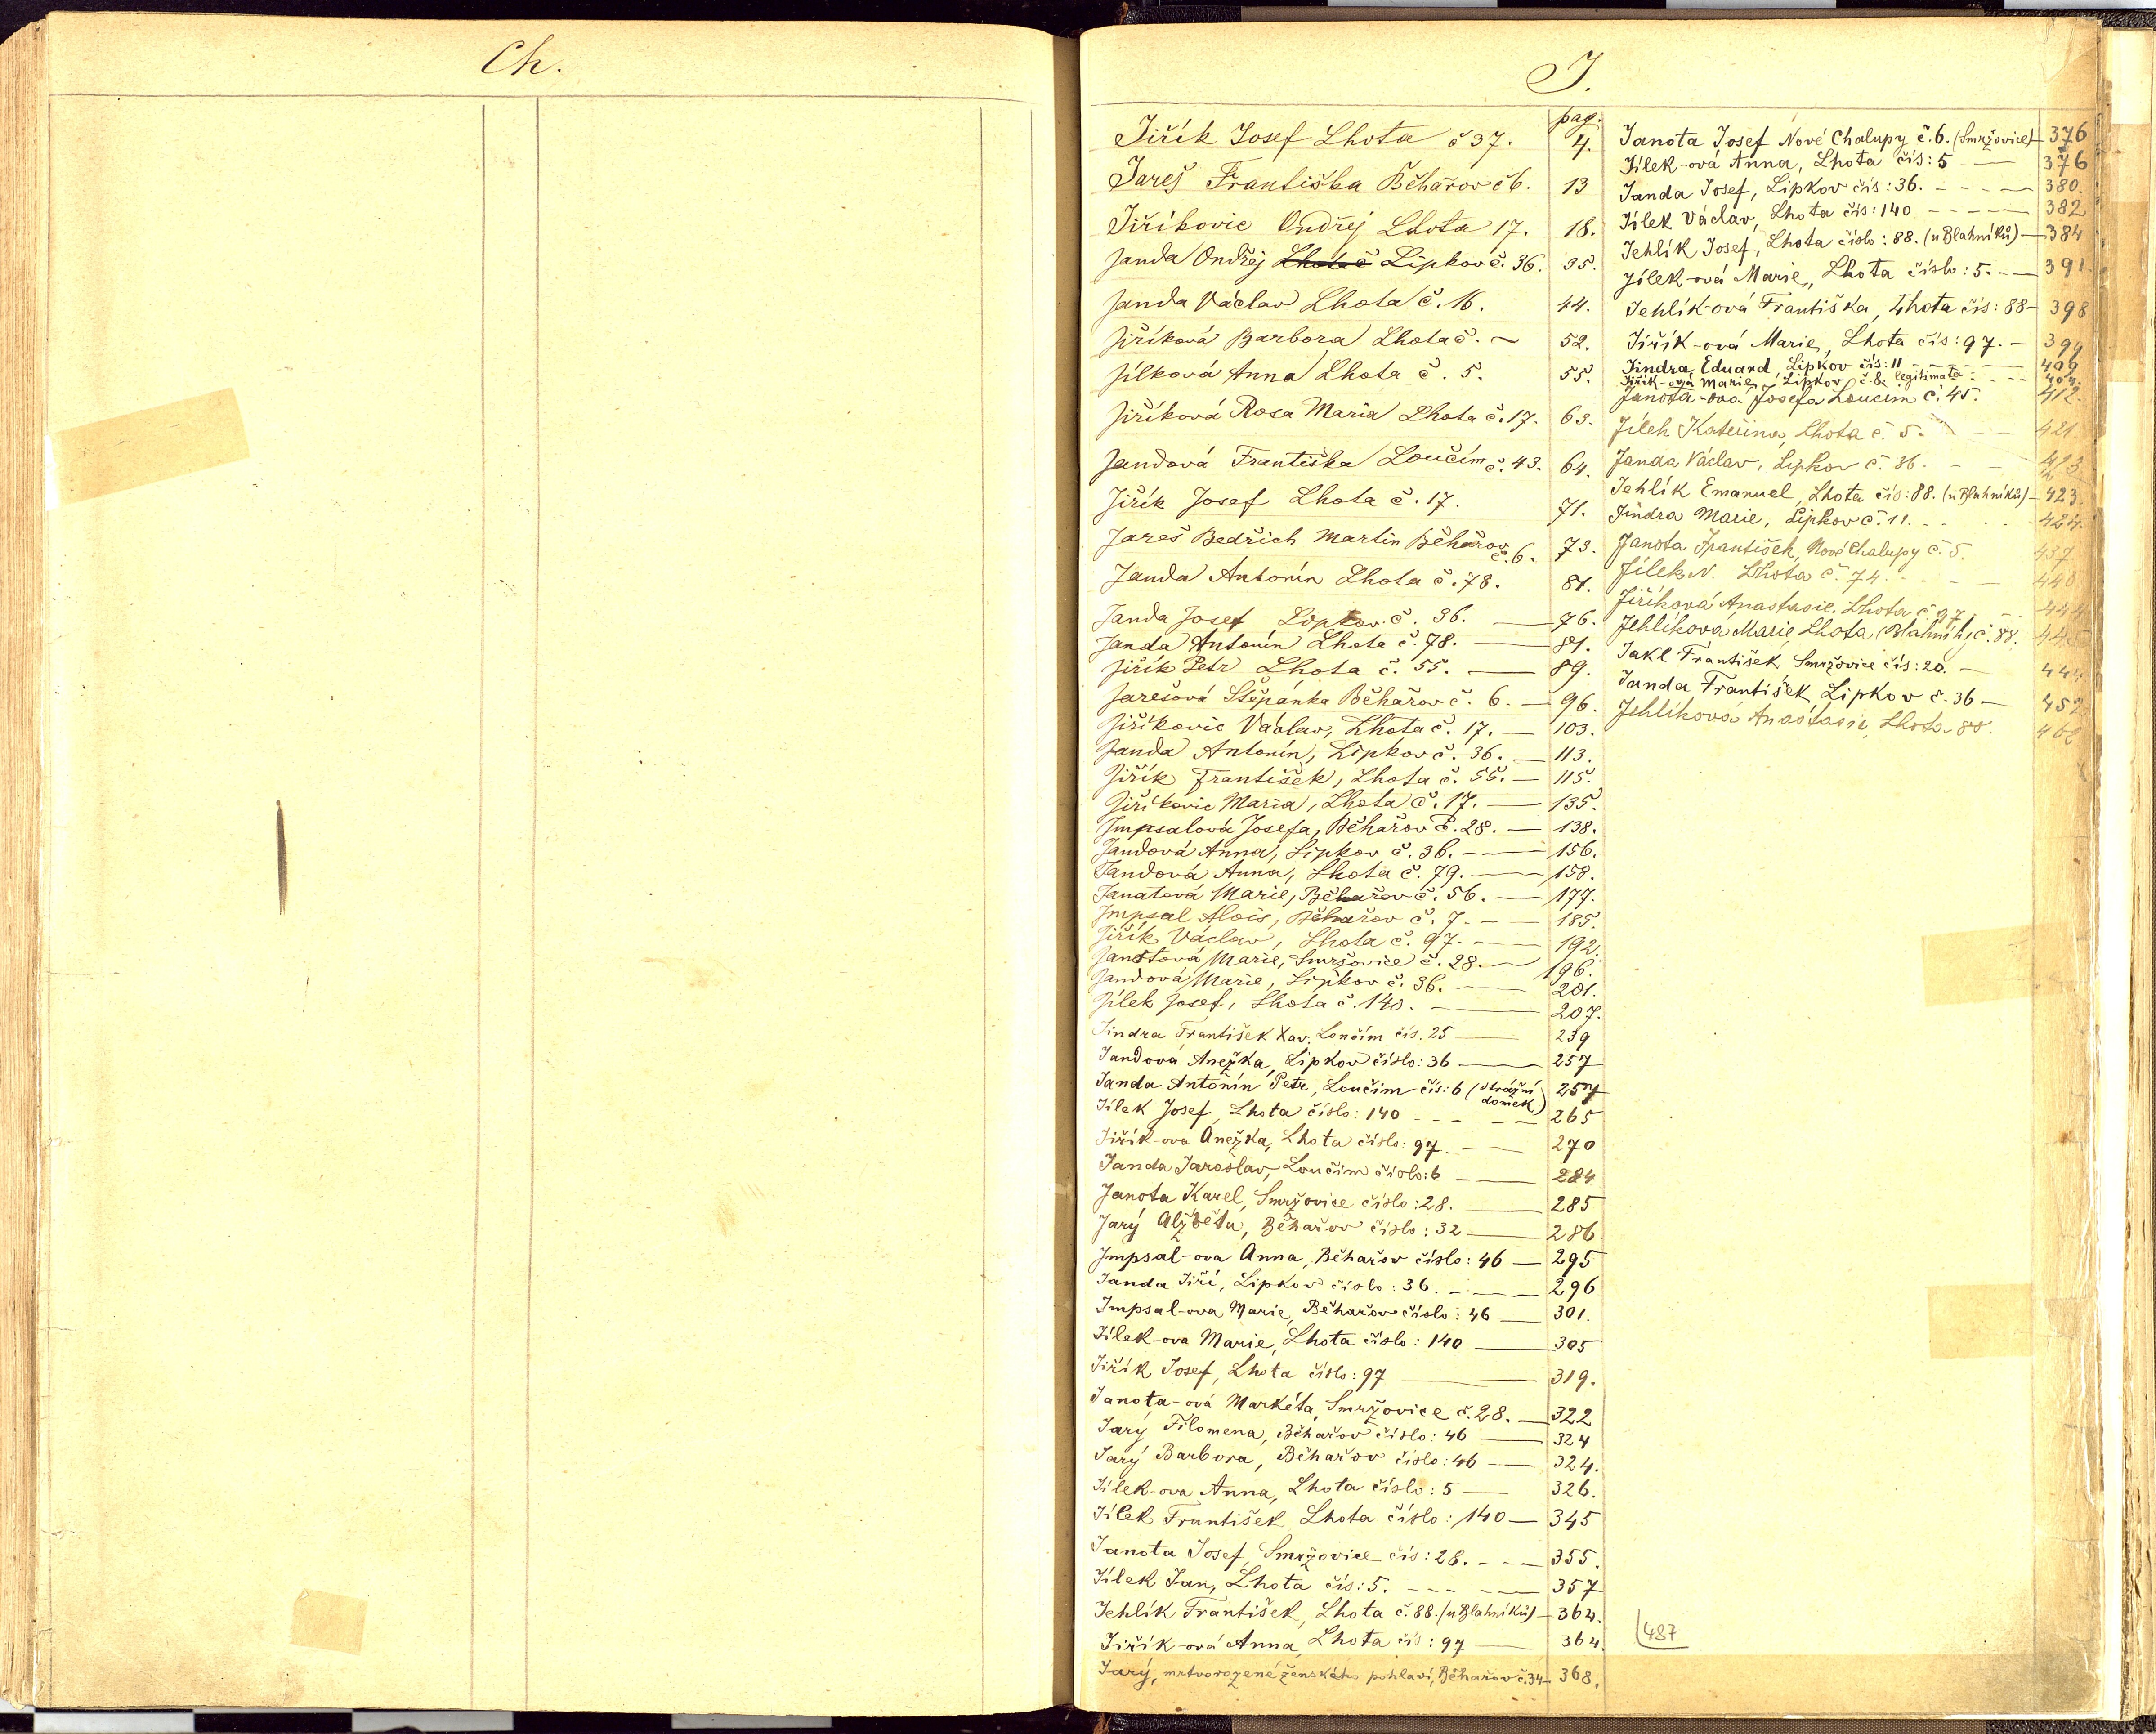 Ch.
J.
pag.
Jiřík Josef Lhota č 37. 4.
Jareš Františka Běhařov č 6. 13
Jiříkovic Ondřej Lhota 17. 18.
Janda Ondřej Lhota č Lipkov č. 36. 35.
Janda Václav Lhota č. 16. 44.
Jiříková Barbora Lhota č. — 52.
Jílková Anna Lhota č. 5. 55.
Jiříková Rosa Maria Lhota č. 17. 63.
Jandová Františka Loučím č. 43. 64.
Jiřík Josef Lhota č. 17. 71.
Jareš Bedřich Martin Běhařov č. 6. 73.
Janda Antonín Lhota č. 78. 81.
Janda Josef Lipkov č. 36. — 76.
Janda Antonín Lhota č. 78. — 81.
Jiřík Petr Lhota č. 55. — 89.
Jarešová Štěpánka Běhařov č. 6. — 96.
Jiříkovic Václav, Lhota č. 17. — 103.
Janda Antonín, Lipkov č. 36. — 113.
Jiřík František, Lhota č. 55. — 115.
Jiříkovic Maria, Lhota č. 17. — 135.
Impsalová Josefa, Běhařov č. 28. — 138.
Jandová Anna, Lipkov č. 36. — 156.
Jandová Anna, Lhota č. 79. — 158.
Janatová Marie, Běhařov č. 56. — 177.
Impsal Alois, Běhařov č. 7. — 185.
Jiřík Václav, Lhota č. 97. — 192.
Janotová Marie, Smržovice č. 28. — 196.
Jandová Marie, Lipkov č. 36. — 201.
Jílek Josef, Lhota č. 140. — 207.
Jindra František Xav. Loučim čís. 25 — 239
Jandová Anežka, Lipkov číslo: 36 — 257
Janda Antonín Petr, Loučim čís: 6 (strážní domek) 257
Jílek Josef, Lhota číslo: 140 — 265
Jiřík-ova Anežka, Lhota číslo: 97. — 270
Janda Jaroslav, Loučim číslo: 6 — 284
Janota Karel, Smržovice číslo: 28. — 285
Jarý Alžběta, Běhařov číslo: 32 — 286.
Impsal-ova Anna, Běhařov číslo: 46 — 295
Janda Jiří, Lipkov číslo: 36. — 296
Impsal-ova Marie, Běhařov číslo: 46 — 301.
Jílek-ova Marie, Lhota číslo: 140 — 305
Jiřík Josef, Lhota číslo: 97 — 319.
Janota-ová Markéta, Smržovice č. 28. — 322
Jarý Filomena, Běhařov číslo: 46 — 324
Jarý Barbora, Běhařov číslo: 46 — 324.
Jílek-ova Anna, Lhota číslo: 5 — 326.
Jílek František Lhota číslo: 140 — 345
Janota Josef, Smržovice čís: 28. — 355.
Jílek Jan, Lhota čís: 5. — 357
Jehlík František, Lhota č. 88. (u Blahníků) — 364.
Jiřík-ová Anna, Lhota čís: 97 — 364.
Jarý, mrtvorozené ženského pohlaví, Běhařov č. 34 — 368.
Janota Josef Nové Chalupy č. 6. (Smržovice) — 376
Jílek-ová Anna, Lhota čís: 5 — 376
Janda Josef, Lipkov čís: 36. — 380.
Jílek Václav, Lhota čís: 140 — 382
Jehlík Josef, Lhota číslo: 88. (u Blahníků) — 384
Jílek-ová Marie, Lhota číslo: 5. — 391.
Jehlík-ová Františka, Lhota čís: 88 — 398
Jiřík-ová Marie, Lhota čís: 97. — 399
Jindra Eduard, Lipkov čís: 11 — 409
Jiřík-ová Marie, Lipkov č. 8. legitimata
Janota-ova Josefa Loučim č. 45. 412.
Jílek Kateřina, Lhota č. 5. — 421
Janda Václav, Lipkov č. 36. —
Jehlík Emanuel, Lhota čís: 88. (u Blahníků) — 423.
Jindra Marie, Lipkov č. 11. 424.
Janota František, Nové Chalupy č. 5. 437
Jílek N. Lhota č. 74. — 440
Jiříková Anastasie. Lhota č 97 444
Jehlíková Marie Lhota (Blahník) č. 88. 445
Jakl František Smržovice čís: 20. — 444
Janda František, Lipkov č. 36 — 452
Jehlíková Anastasie, Lhota 88.
487